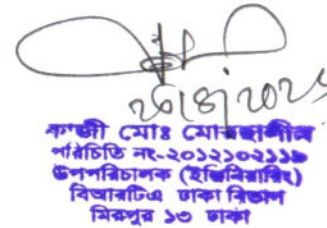 ২৬/৪/২০২৫
কাজী মোঃ
পরিচিতি নং-২০১২১০২১১৯
উপপরিচালক (ইঞ্জিনিয়ারিং)
বিআরটিএ ঢাকা বিভাগ
মিরপুর ১৩ ঢাকা